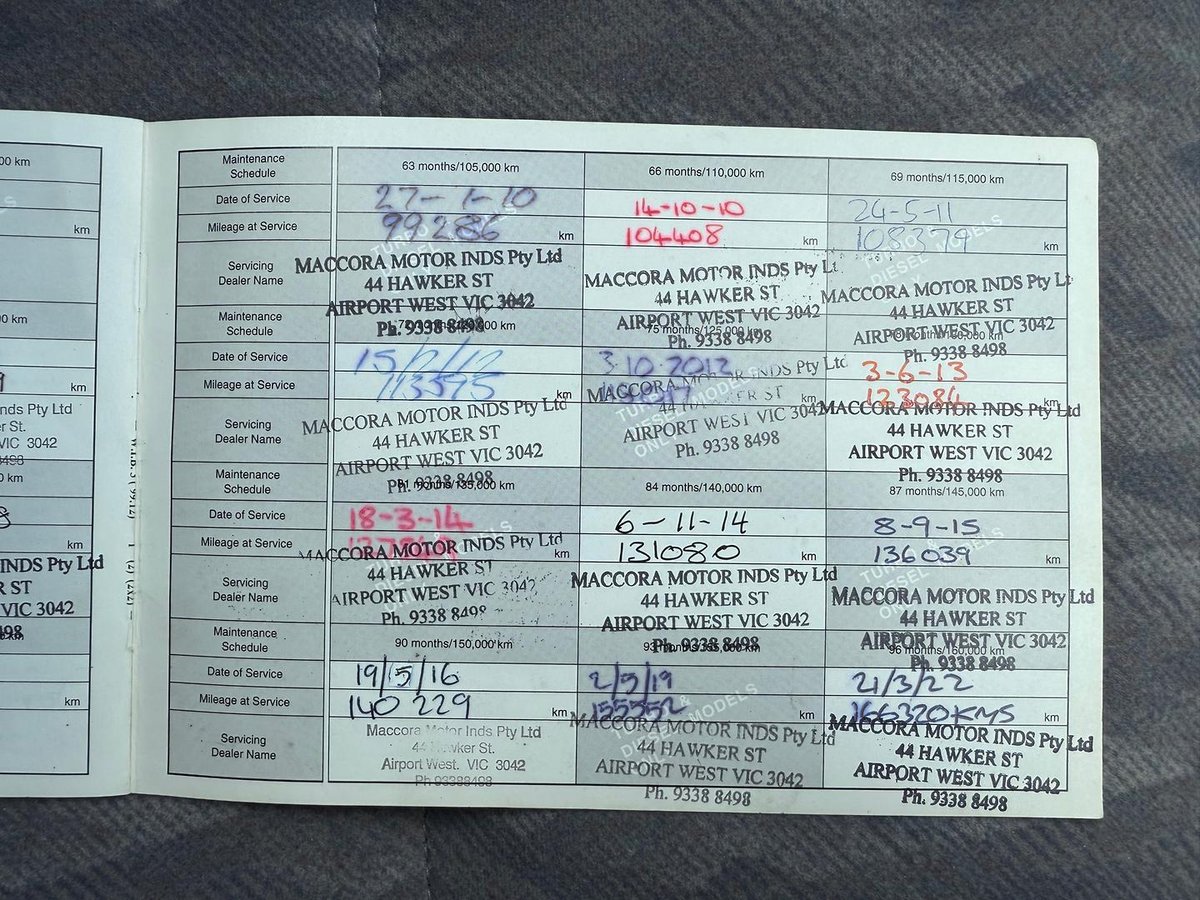 00 km
km
00 km
km
nds Pty Ltd
er St.
VIC 3042
8498
0 km
km
INDS Pty Ltd
R ST
VIC 3042
498
km
Maintenance Schedule 63 months/105,000 km 66 months/110,000 km 69 months/115,000 km
Date of Service 27-1-10 14-10-10 24-5-11
Mileage at Service 99286 km 104408 km 108379 km
Servicing Dealer Name
MACCORA MOTOR INDS Pty Ltd MACCORA MOTOR INDS Pty Lt MACCORA MOTOR INDS Pty Lt
44 HAWKER ST 44 HAWKER ST 44 HAWKER ST
AIRPORT WEST VIC 3042 AIRPORT WEST VIC 3042 AIRPORT WEST VIC 3042
Ph. 9338 8498 Ph. 9338 8498 Ph. 9338 8498
Maintenance Schedule 75 months/125,000 km
Date of Service 3.10.2012 3-6-13
Mileage at Service 113595 km km 123084 km
Servicing Dealer Name
MACCORA MOTOR INDS Pty Ltd MACCORA MOTOR INDS Pty Ltd MACCORA MOTOR INDS Pty Ltd
44 HAWKER ST 44 HAWKER ST 44 HAWKER ST
AIRPORT WEST VIC 3042 AIRPORT WEST VIC 3042 AIRPORT WEST VIC 3042
Ph. 9338 8498 Ph. 9338 8498 Ph. 9338 8498
Maintenance Schedule 81 months/135,000 km 84 months/140,000 km 87 months/145,000 km
Date of Service 18-3-14 6-11-14 8-9-15
Mileage at Service km 131080 km 136039 km
Servicing Dealer Name
MACCORA MOTOR INDS Pty Ltd MACCORA MOTOR INDS Pty Ltd MACCORA MOTOR INDS Pty Ltd
44 HAWKER ST 44 HAWKER ST 44 HAWKER ST
AIRPORT WEST VIC 3042 AIRPORT WEST VIC 3042 AIRPORT WEST VIC 3042
Ph. 9338 8498 Ph. 9338 8498 Ph. 9338 8498
Maintenance Schedule 90 months/150,000 km 96 months/160,000 km
Date of Service 19/5/16 2/5/19 21/3/22
Mileage at Service 140 229 km 155552 km 166320KMS km
Servicing Dealer Name
Maccora Motor Inds Pty Ltd MACCORA MOTOR INDS Pty Ltd MACCORA MOTOR INDS Pty Ltd
44 Hawker St. 44 HAWKER ST 44 HAWKER ST
Airport West. VIC 3042 AIRPORT WEST VIC 3042 AIRPORT WEST VIC 3042
Ph 93388498 Ph. 9338 8498 Ph. 9338 8498